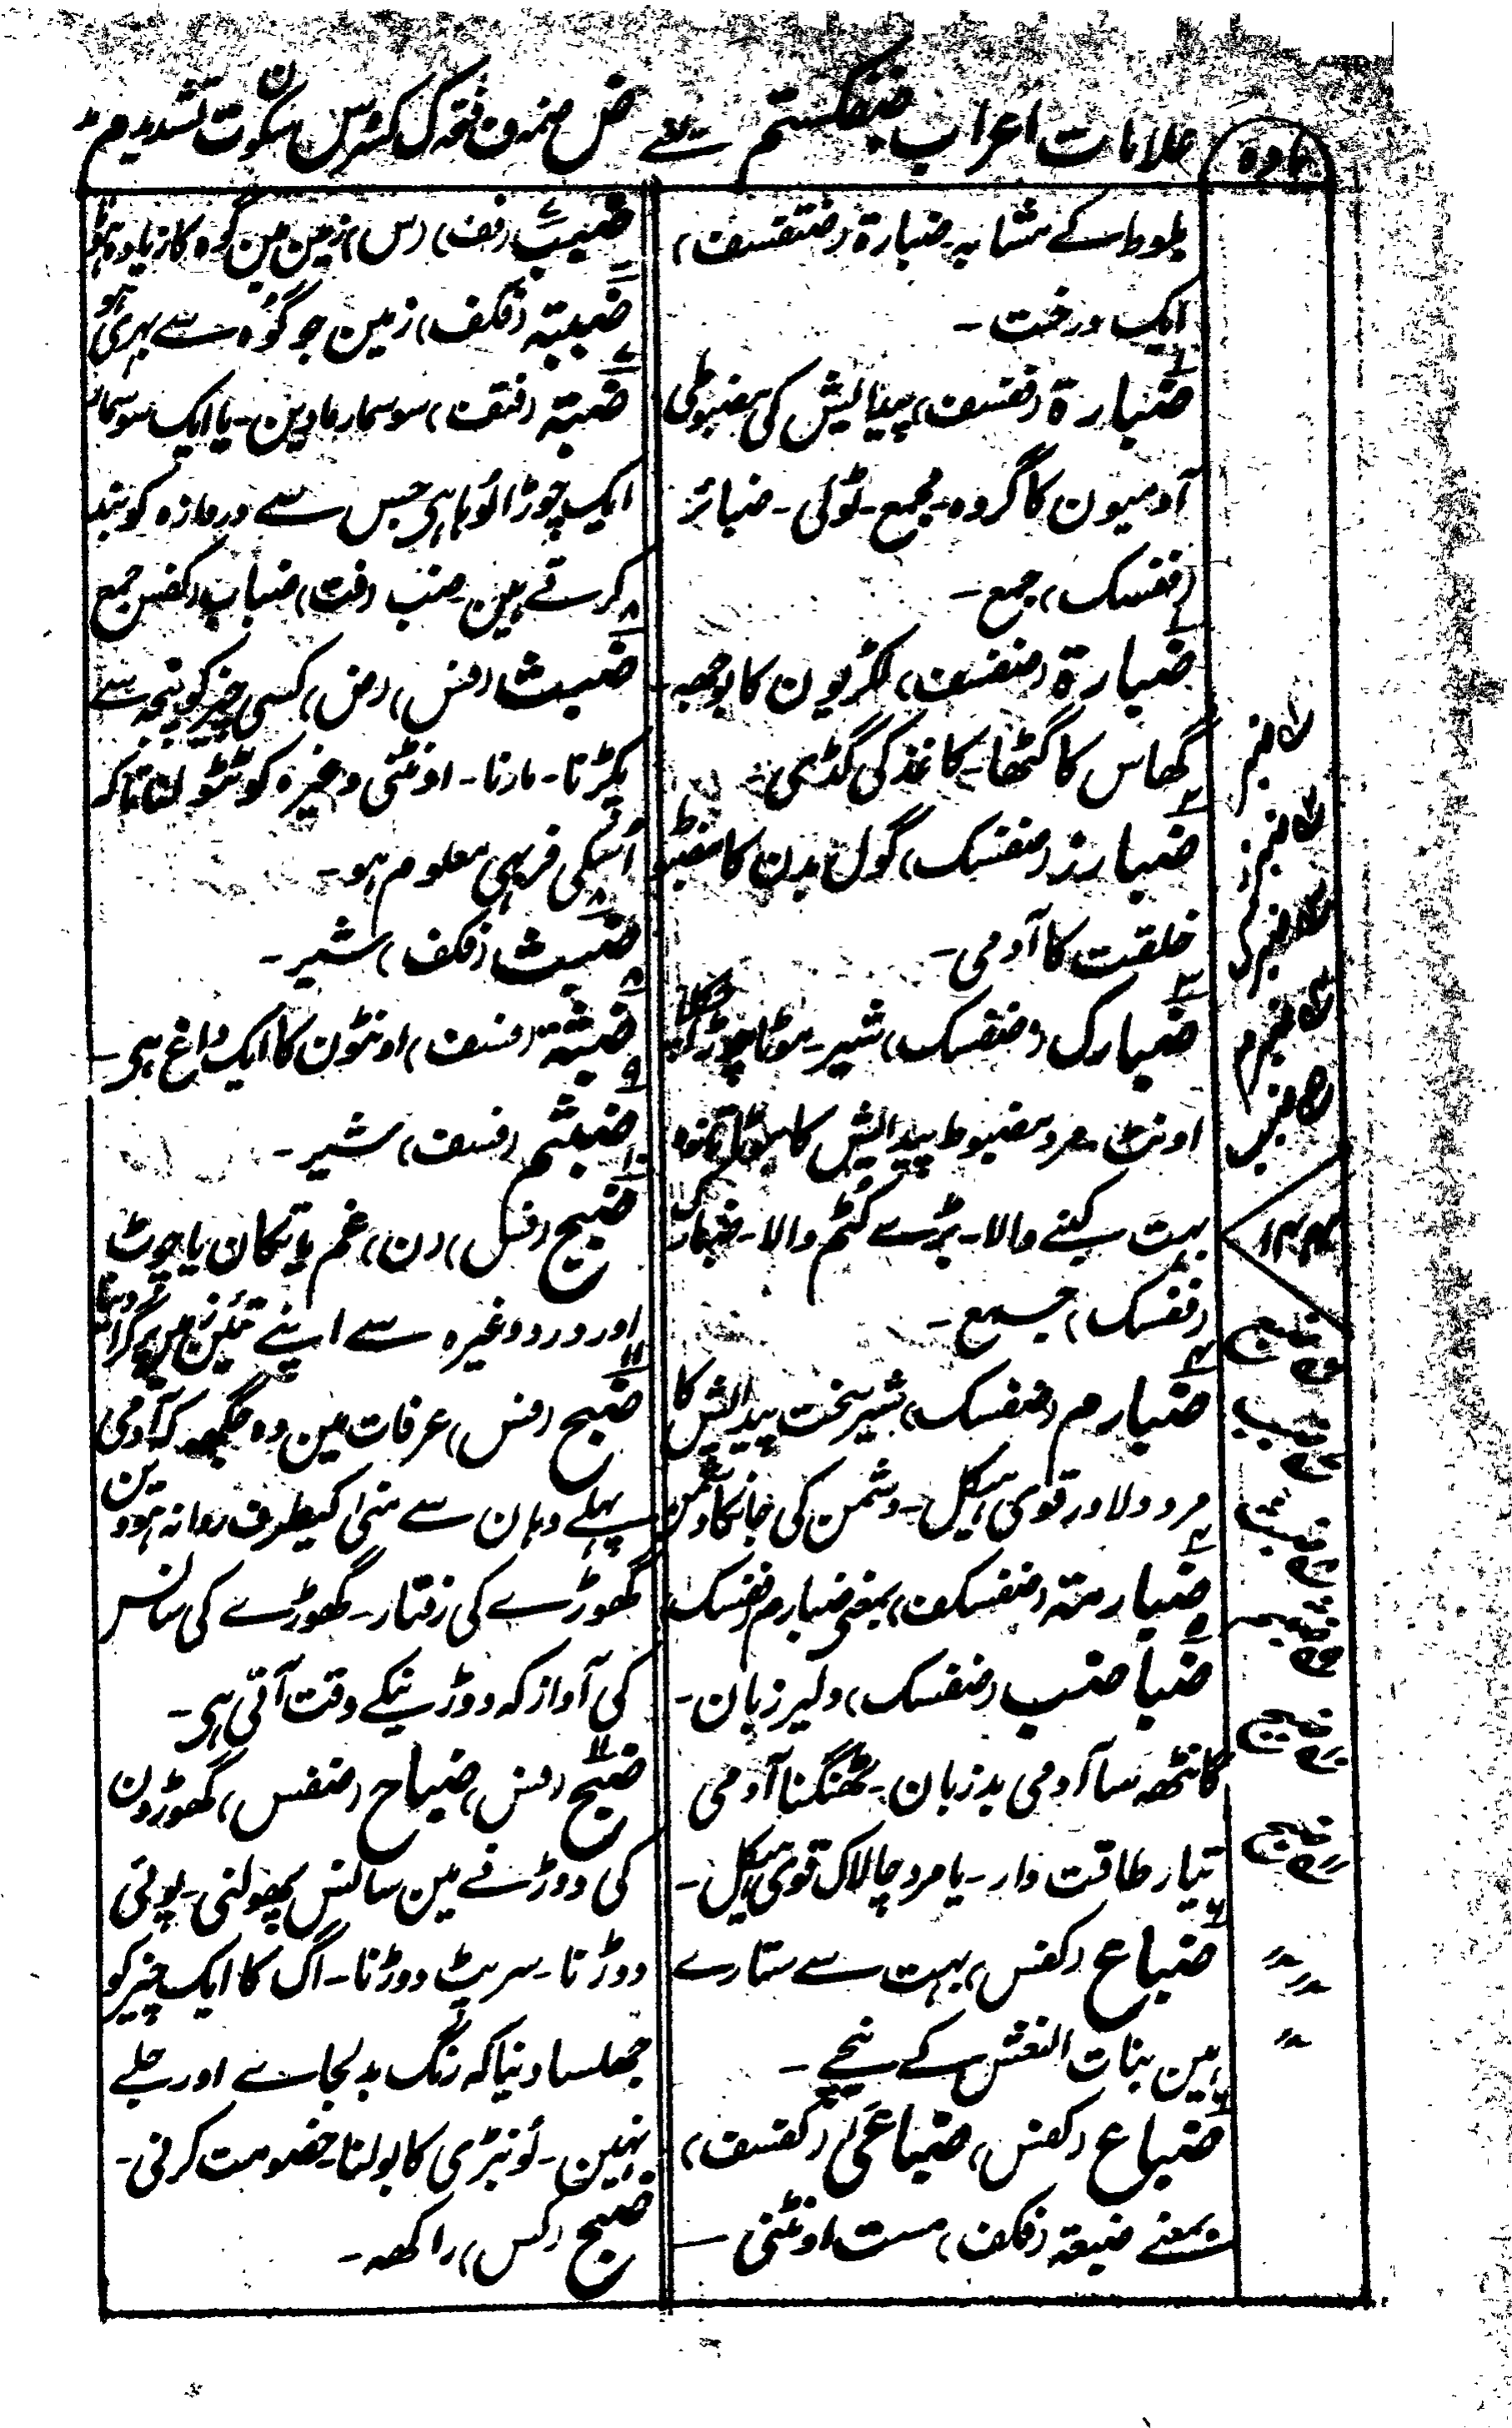 مادہ
علامات اعراب ضفکستم یعنے ض ضمہ ف فتحہ ک کسرہ س سکون ت تشدید م مد
بلوط کے مشابہ۔ ضبارۃ (ضتفسف)
ایک درخت۔
ضبارۃ (فقسف) پیدایش کی مضبوطی
آدمیون کا گروہ۔ مجمع۔ ٹولی۔ ضبائر
(ففسک) جمع۔
ضبارۃ (ضفسف) لکڑیون کا بوجھہ۔
گھاس کا گٹھا۔ کاغذ کی گڈی۔
ضبارز (ضفسک) گول بدن کا مضبوط
خلقت کا آدمی۔
ضبارک (ضفسک) شیر۔ موٹا چوڑا چکلا
اونٹ۔ مرد مضبوط پیدایش کا
بہت کہنے والا۔ بڑے کٹم والا۔ ضبارک
(ففسک) جمع۔
ضبارم (ضفسک) شیر سخت پیدایش کا
مرد دلاور قوی ہیکل۔ دشمن کی جانکا دشمن
ضبارمتہ (ضفسکف) بمعنی ضبارم ضفسک
ضباضب (ضفسک) دلیر زبان۔
گانٹھہ سا آدمی بدزبان۔ ٹھنگنا آدمی
تیار طاقت دار۔ یا مرد چالاک قوی ہیکل۔
ضباع (کفس) بہت سے ستارے
ہین بنات النعش کے نیچے۔
ضباع (کفس) ضباعیٰ (کفسف)
بمعنے ضبعۃ (فکف) مست اونٹنی —
ضبب (فف) (س) زمین مین گوہ کا زیادہ ہونا
ضببتہ (فکف) زمین جو گوہ سے بھری ہو
ضبتہ (فتف) سوسمار مادین۔ یا ایک سوسمار
ایک چوڑا لوہا ہی جس سے دروازہ کو بند
کرتے ہین۔ ضب (فت) ضباب (کفس) جمع
ضبث (فس) (ض) کسی چیز کو پنجہ سے
پکڑنا۔ مارنا۔ اونٹنی وغیرہ کو ٹٹولنا تاکہ
اُسکی فربہی معلوم ہو۔
ضبث (فکف) شیر۔
ضبثتہ (فسف) اونٹون کا ایک داغ ہی۔
ضبثم (فسف) شیر۔
ضبج (فس) (ن) غم یا تکان یا چوٹ
اور درد وغیرہ سے اپنے تئین زمین پر گرا دینا
ضبح (فس) عرفات مین وہ جگہہ کہ آدمی
پہلے وہان سے منیٰ کیطرف روانہ ہوتے ہین
گھوڑے کی رفتار۔ گھوڑے کی سانس
کی آواز کہ دوڑنیکے وقت آتی ہی۔
ضبح (فس) ضباح (ضفس) گھوڑون
کی دوڑنے مین سانس پھولنی۔ پوئی
دوڑنا۔ سرپٹ دوڑنا۔ آگ کا ایک چیز کو
جھلسا دنیا کہ رنگ بدلجاے اور جلے
نہین۔ لونبڑی کا بولنا۔ خصومت کرنی۔
ضبح (کس) راکھہ۔